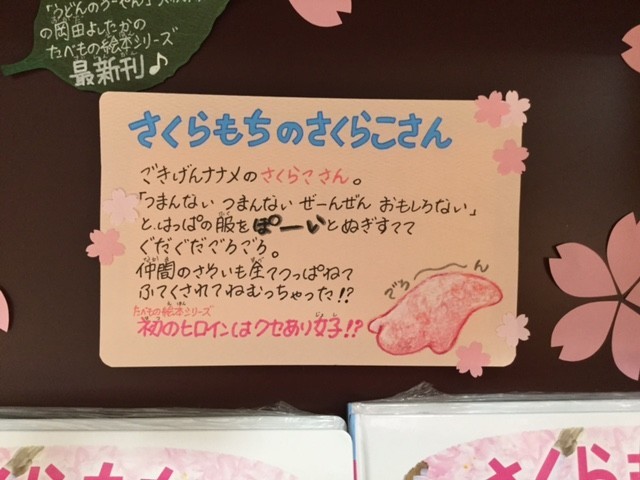 「うどんのうーやん」
の岡田よしたかの
たべもの絵本シリーズ
最新刊♪
さくらもちのさくらこさん
ごきげんナナメのさくらこさん。
「つまんない つまんない ぜーんぜん おもしろない」
と、はっぱの服をぽーいとぬぎすてて
ぐだぐだごろごろ。
仲間のさそいも全てつっぱねて
ふてくされてねむっちゃった!?
たべもの絵本シリーズ
初のヒロインはクセあり女子!?
ごろーん